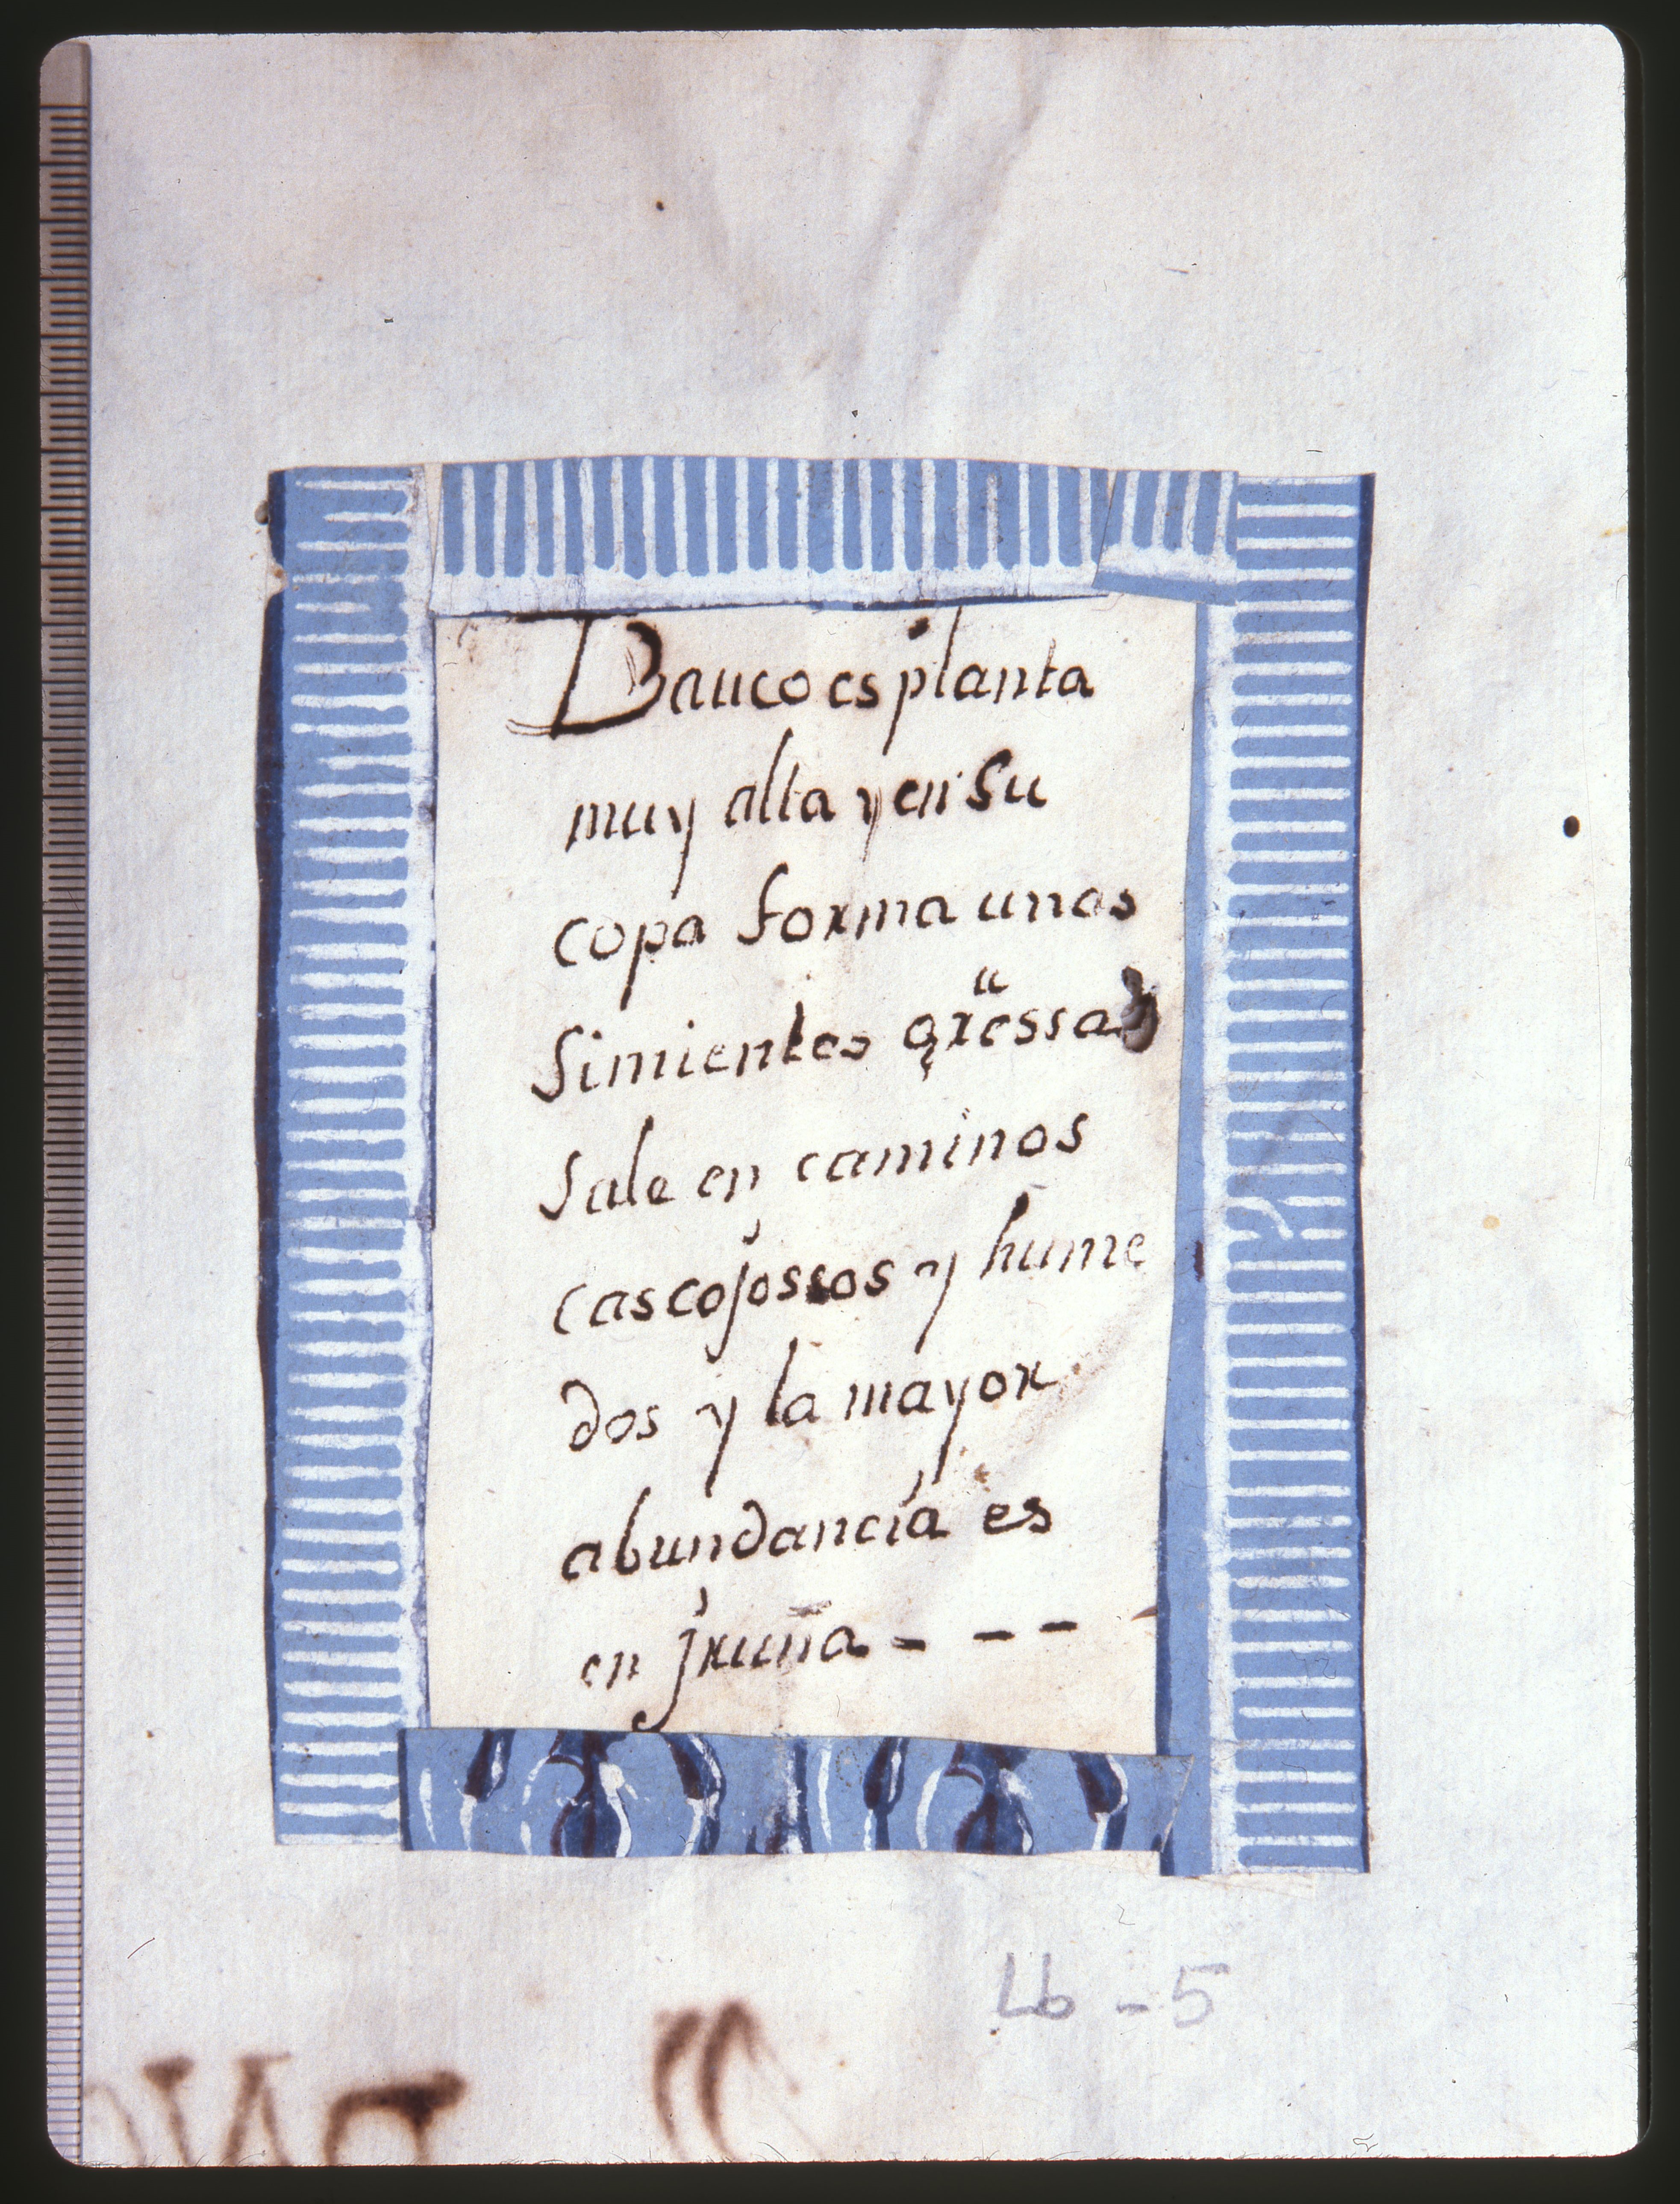 Dauco es planta
muy alta y en su
copa forma unos
Simientes gruessas
Sale en caminos
cascojossos y hume
dos y la mayor
abundancia es
en jruña - - -
Lb - 5